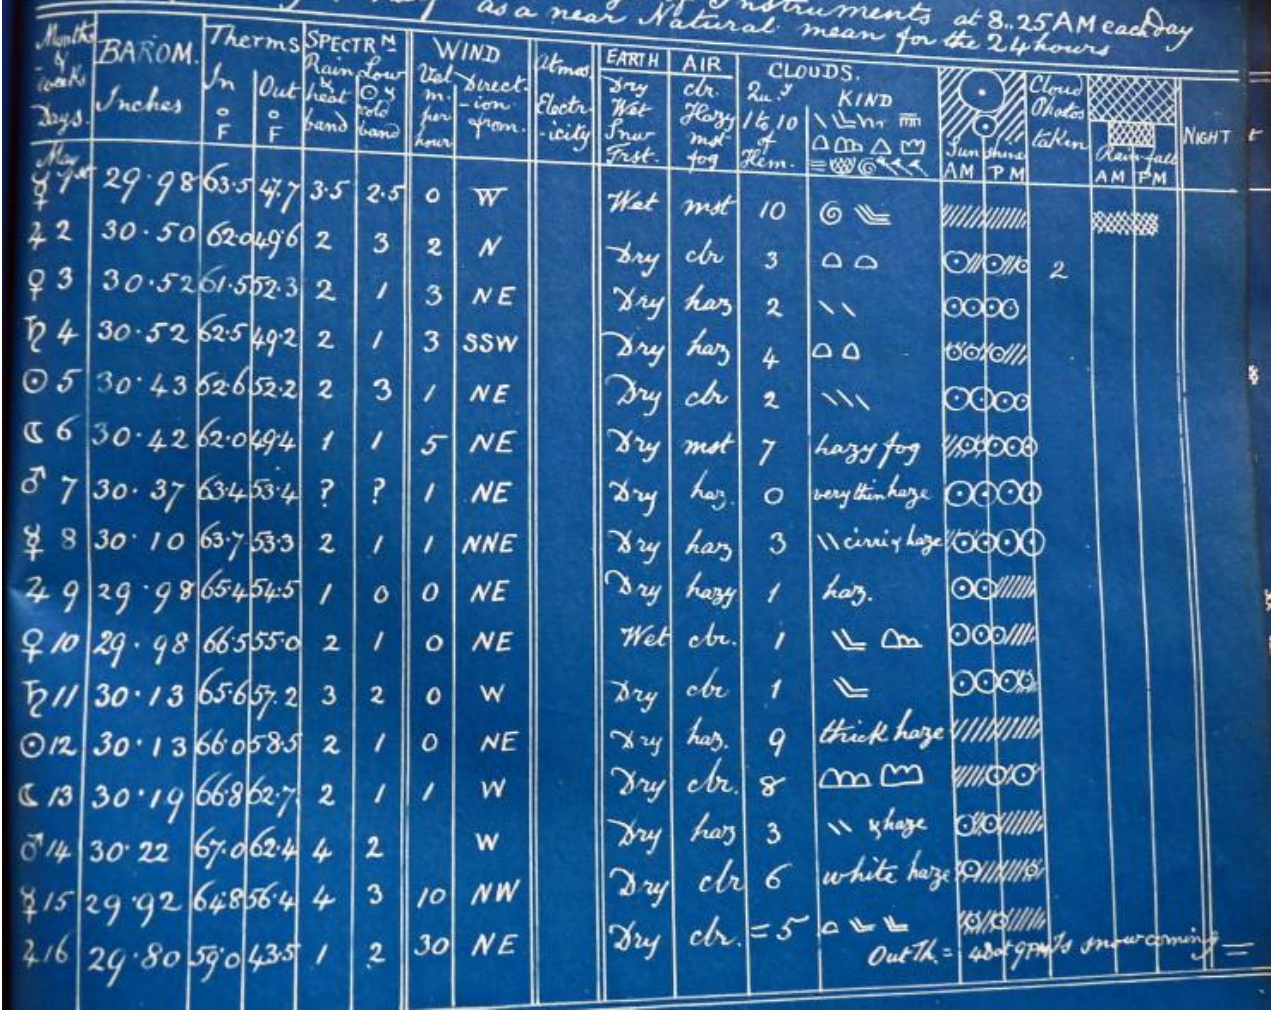 as a near Natural mean for the 24 hours
Instruments at 8..25 AM each day
Months & weeks Days. BAROM. Inches Therms In °F Out °F SPECTR^M Rain & heat band Low ☉ & cold band WIND Vel m. per hour Direct-ion from. Atmos. Electr-icity EARTH Dry Wet Snw Frst. AIR clr. Hazy mst fog CLOUDS. Qu.y 1 to 10 of Hem. KIND Sun shine AM PM Cloud Photos taken Rain-fall AM PM NIGHT
May
☿ 1st 29.98 63.5 47.7 3.5 2.5 0 W Wet mst 10
♃ 2 30.50 62.0 49.6 2 3 2 N Dry clr 3 2
♀ 3 30.52 61.5 52.3 2 1 3 NE Dry haz 2 \\
♄ 4 30.52 62.5 49.2 2 1 3 SSW Dry haz 4
☉ 5 30.43 62.6 52.2 2 3 1 NE Dry clr 2 \\\
☾ 6 30.42 62.0 49.4 1 1 5 NE Dry mst 7 hazy fog
♂ 7 30.37 63.4 53.4 ? ? 1 NE Dry haz. 0 very thin haze
☿ 8 30.10 63.7 53.3 2 1 1 NNE Dry haz 3 \\ cirri & haze
♃ 9 29.98 65.4 54.5 1 0 0 NE Dry hazy 1 haz.
♀ 10 29.98 66.5 55.0 2 1 0 NE Wet clr. 1
♄ 11 30.13 65.6 57.2 3 2 0 W Dry clr 1
☉ 12 30.13 66.0 58.5 2 1 0 NE Dry haz. 9 thick haze
☾ 13 30.19 66.8 62.7 2 1 1 W Dry clr. 8
♂ 14 30.22 67.0 62.4 4 2 W Dry haz 3 \\ & haze
☿ 15 29.92 64.8 56.4 4 3 10 NW Dry clr 6 white haze
♃ 16 29.80 59.0 43.5 1 2 30 NE Dry clr. = 5
Out Th. = 48 at 9 PM Is snow coming =